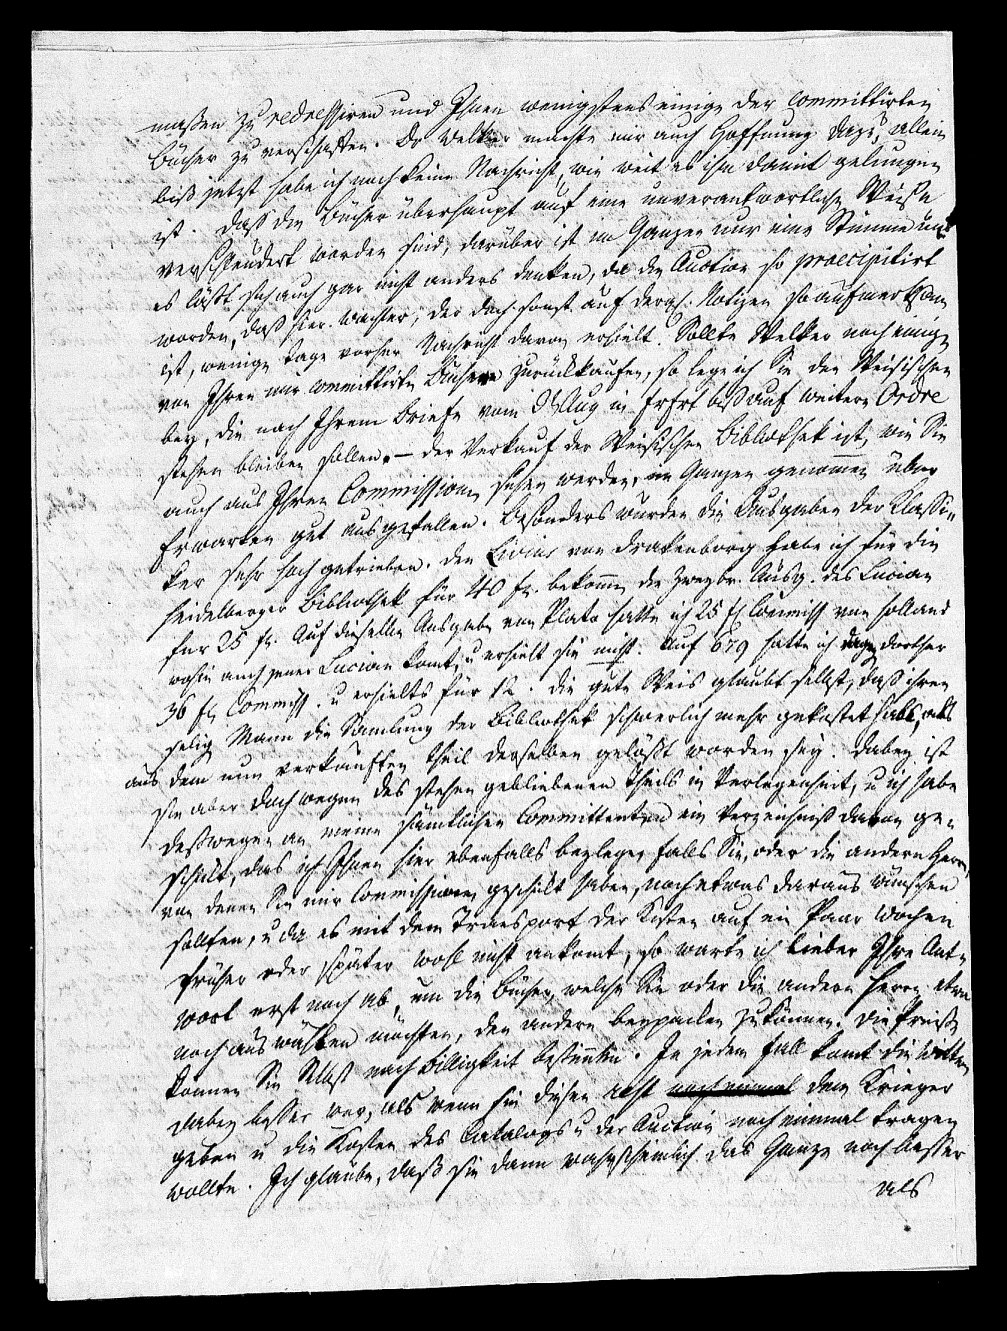 maßen zu redressiren und Ihnen wenigstens einige der committirten
Bücher zu verschaffen. Dr Welker machte mir auch Hoffnung dazu, allein
biß jetzt habe ich noch keine Nachricht, wie weit es ihm damit gelungen
ist. Daß die Bücher überhaupt auf eine unverantwortliche Weise
verschleudert worden sind, darüber ist im Ganzen nur eine Stimme und
es läßt sich auch gar nicht anders denken, da die Auction so praecipitirt
worden, daß hier. Wachter, der doch sonst auf dergl. Notizen so aufmerksam
ist, wenige Tage vorher Nachricht davon erhielt. Sollte Welker noch einige
von Ihren mir committirten Büchern zurückkaufen, so lege ich Sie den Weisischen
bey, die nach Ihrem Briefe vom Aug in Frfrt biß auf weitere Ordre
stehen bleiben sollen. – Der Verkauf der Weisischen Bibliothek ist, wie Sie
auch aus Ihren Commissionen sehen werden, im Ganzen genommen über
Erwarten gut ausgefallen. Besonders wurden die Ausgaben der Klassi-
ker sehr hoch getrieben. Den Livius von Drakenborg habe ich für die
Heidelberger Bibliothek für 40 fl. bekomm die Zweybr. Ausg. des Lucian
für 25 fl. Auf dieselbe Ausgabe von Plato hatte ich 25 fl Commiss von Holland
wohin auch jener Lucian komt, u erhielt sie nicht. Auf 679 hatte ich dorther
36 fl Commiss. u erhielts für 12. Die gute Weis glaubt selbst, daß ihren
selig Mann die Samlung der Bibliothek schwerlich mehr gekostet habe, als
aus dem nun verkauften Theil derselben gelößt worden sey. Dabey ist
sie aber doch wegen des stehen gebliebenen Theils in Verlegenheit, u ich habe
deßwegen an meine sämtlichen Committenten ein Verzeichniß davon ge-
schikt, das ich Ihnen hier ebenfalls beylege, falls Sie, oder die andern Herrn,
von denen Sie mir Commissionen geschikt haben, noch etwas daraus wünschen
sollten, u da es mit dem Transport der Kosten auf ein Paar Wochen
früher oder später wohl nicht ankomt, so warte ich lieber Ihre Ant-
wort erst noch ab, um die Bücher, welche Sie oder die andern Herrn etwa
noch auswählen möchten, den andern beypacken zu können. Die Preiße
können Sie selbst nach Billigkeit bestimmen. In jedem Fall komt die Wittwe
dabey besser weg, als wenn sie diesen Rest dem Krieger
geben u die Kosten des Catalogs u der Auction noch einmal tragen
wollte. Ich glaube, daß sie dann wahrscheinlich das Ganze noch besser
als